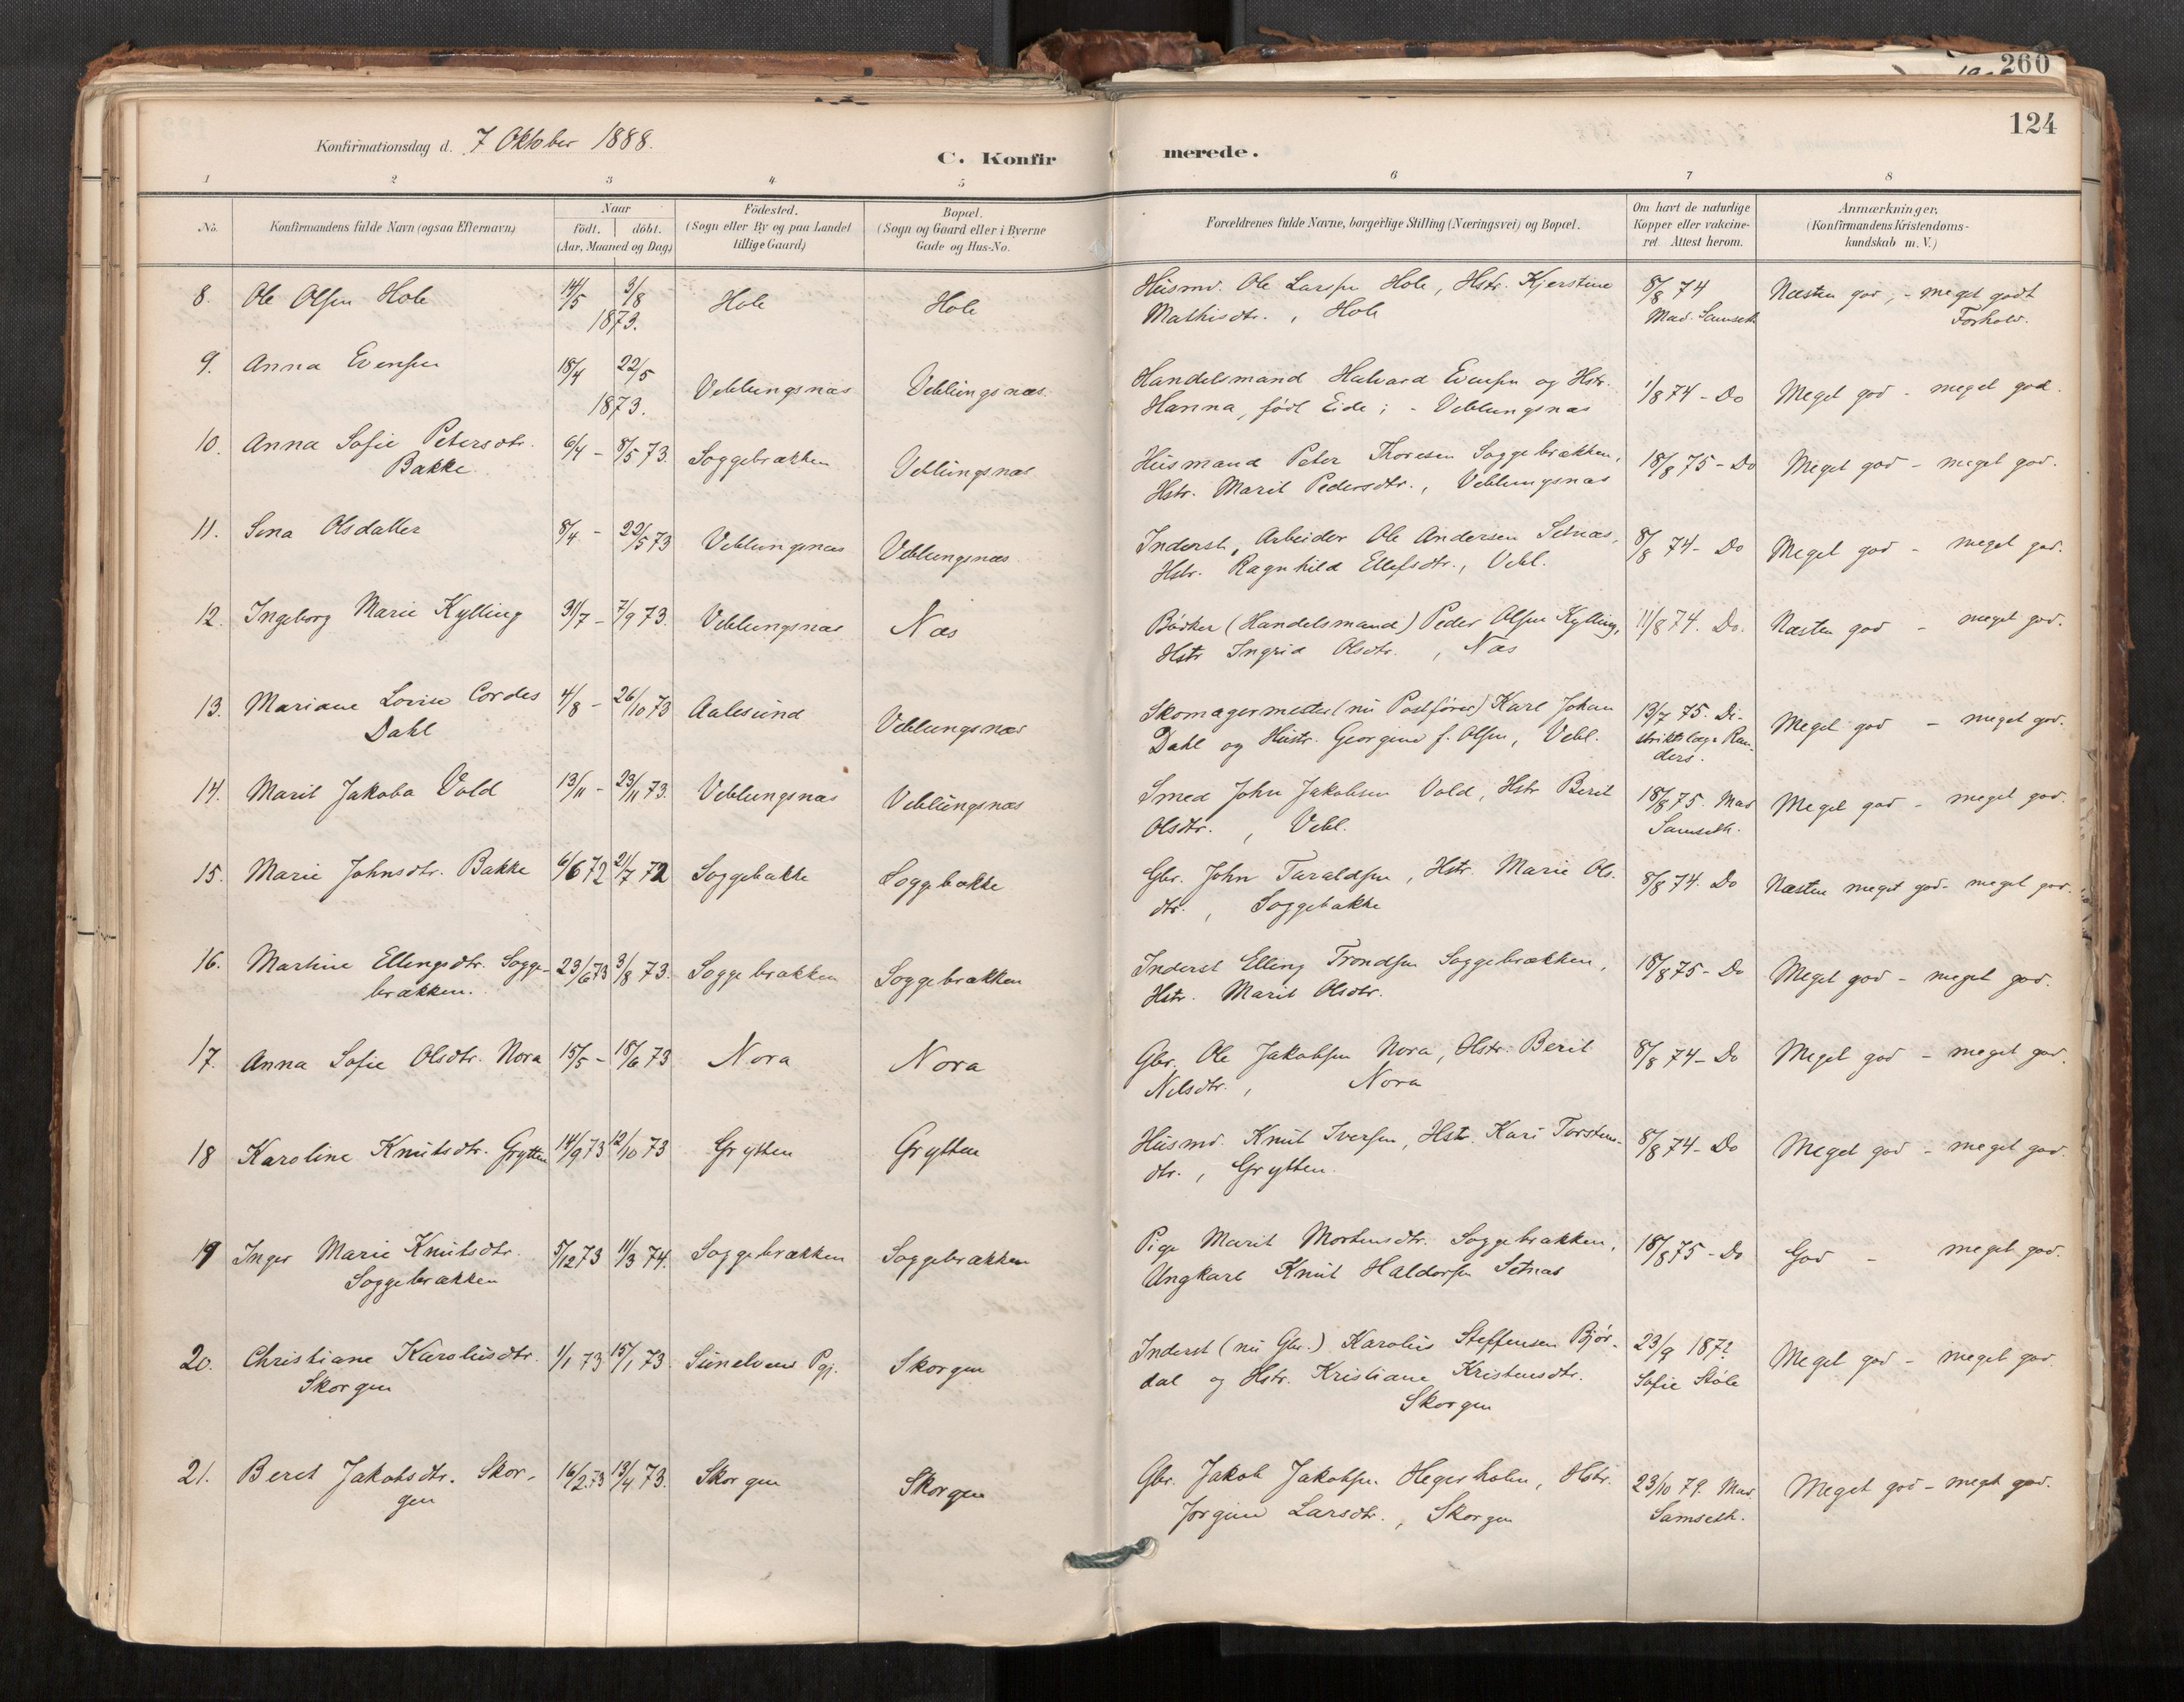 260
124
Konfirmationsdag d. 7 Oktober 1888.
C. Konfirmerede.
1 2 3 4 5 6 7 8
No.
Konfirmandens fulde Navn (ogsaa Efternavn)
Naar
födt. | döbt.
(Aar, Maaned og Dag)
Födested.
(Sogn eller By og paa Landet
tillige Gaard)
Bopæl.
(Sogn og Gaard eller i Byerne
Gade og Hus-No.
Forældrenes fulde Navne, borgerlige Stilling (Næringsvei) og Bopæl.
Om havt de naturlige
Kopper eller vakcine-
ret Attest herom.
Anmærkninger,
(Konfirmandens Kristendoms-
kundskab m. V.)
8. Ole Olsen Hole 14/5 3/8 1873. Hole Hole Husmd. Ole Larssen Hole, Hstr. Kjerstine
Mathisdtr., Hole 8/8 74 Mad. Samseth Næsten god, - meget godt
Forhold.
9. Anna Evensen 18/4 22/5 1873. Veblungsnæs Veblungsnæs. Handelsmand Halvard Evensen og Hstr.
Hanna, født Eide; - Veblungsnæs 1/8 74 - Do Meget god - meget god.
10. Anna Sofie Petersdtr.
Bakke 6/4 - 8/5 73. Soggebrækken Veblungsnæs Husmand Peter Thoresen Soggebrækken,
Hstr. Marit Pedersdtr., Veblungsnæs 18/8 75 - Do Meget god - meget god.
11. Sina Olsdatter 8/4 - 22/5 73 Veblungsnæs Veblungsnæs. Inderst, Arbeider Ole Andersen Setnæs,
Hstr. Ragnhild Ellefsdtr., Vebl. 8/8 74 - Do Meget god - meget god.
12. Ingeborg Marie Kylling 31/7 - 7/9 73. Veblungsnæs Næs Bødker (Handelsmand) Peder Olsen Kylling,
Hstr Ingrid Olsdtr., Næs 11/8 74. Do. Næsten god - meget god.
13. Mariane Lovise Cordes
Dahl 4/8 - 26/10 73 Aalesund Veblungsnæs Skomagermester (nu Postfører) Karl Johan
Dahl og Hustr. Georgine f. Olsen, Vebl. 13/7 75. Di-
striktslæge Ran-
ders. Meget god - meget god.
14. Marit Jakoba Vold 13/11 - 23/11 73. Veblungsnæs Veblungsnæs Smed John Jakobsen Vold, Hstr Berit
Olsdtr., Vebl. 18/8 75. Mad
Samseth. Meget god - meget god.
15. Marie Johnsdtr. Bakke 6/6 72 21/7 72 Soggebakke Soggebakke Gbr. John Taraldsen, Hstr. Marie Ols-
dtr., Soggebakke 8/8 74. Do Næsten meget god - meget god.
16. Martine Ellingsdtr. Sogge-
brækken. 23/6 73 3/8 73. Soggebrækken Soggebrækken Inderst Elling Trondsen Soggebrækken,
Hstr. Marit Olsdtr. 18/8 75 - Do Meget god - meget god.
17. Anna Sofie Olsdtr. Nora 15/5 - 18/6 73 Nora Nora Gbr. Ole Jakobsen Nora, Hstr. Berit
Nilsdtr., Nora 8/8 74 - Do Meget god - meget god.
18 Karoline Knutsdtr. Grytten 14/9 73 12/10 73 Grytten Grytten Husmd. Knut Iversen, Hstr. Kari Torstens-
dtr., Grytten. 8/8 74 - Do Meget god - meget god.
19 Inger Marie Knutsdtr.
Soggebrækken 5/12 73 11/3 74. Soggebrækken Soggebrækken Pige Marit Mortensdtr. Soggebrækken,
Ungkarl Knut Haldorsen Setnæs 18/8 75 - Do God - meget god.
20. Christiane Karolusdtr.
Skorgen 1/1 73 15/1 73. Sunelvens Pgj. Skorgen Inderst (nu Gbr.) Karolus Steffensen Bjør-
dal og Hstr. Kristiane Kristensdtr.
Skorgen 23/9 187?
Sofie Støle Meget god - meget god.
21. Beret Jakobsdtr. Skor-
gen 16/2 73 13/4 73. Skorgen Skorgen Gbr. Jakob Jakobsen Hegerholm, Hstr.
Jørgine Larsdtr., Skorgen 23/10 79. Mad.
Samseth. Meget god - meget god.